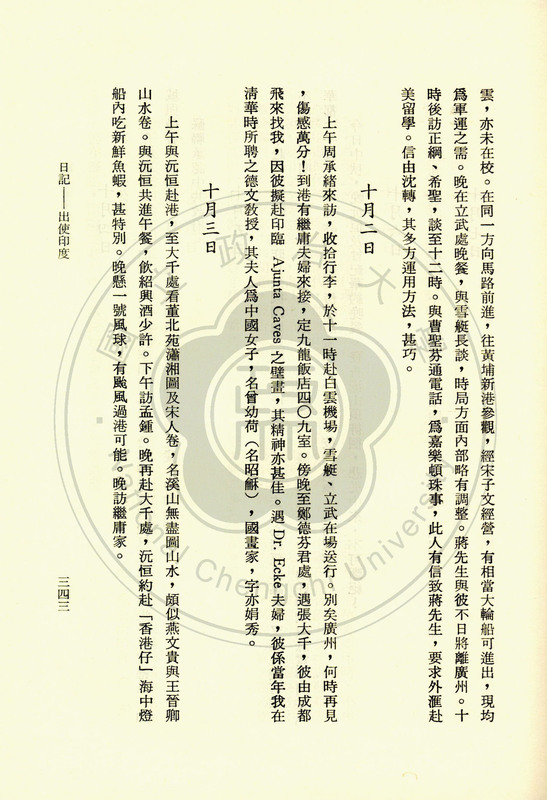 雲，亦未在校。在同一方向馬路前進，往黃埔新港參觀，經宋子文經營，有相當大輪船可進出，現均
爲軍運之需。晚在立武處晚餐，與雪艇長談，時局方面內部略有調整。蔣先生與彼不日將離廣州。十
時後訪正綱、希聖，談至十二時。與曹聖芬通電話，爲嘉樂頓珠事，此人有信致蔣先生，要求外滙赴
美留學。信由沈轉，其多方運用方法，甚巧。
十月二日
上午周承緒來訪，收拾行李，於十一時赴白雲機場，雪艇、立武在場送行。別矣廣州，何時再見
，傷感萬分！到港有繼庸夫婦來接，定九龍飯店四〇九室。傍晚至鄭德芬君處，遇張大千，彼由成都
飛來找我，因彼擬赴印臨 Ajunta Caves 之壁畫，其精神亦甚佳。遇 Dr. Ecke 夫婦，彼係當年我在
淸華時所聘之德文敎授，其夫人爲中國女子，名曾幼荷（名昭龢），國畫家，字亦娟秀。
十月三日
上午與沅恒赴港，至大千處看董北苑瀟湘圖及宋人卷，名溪山無盡圖山水，頗似燕文貴與王晉卿
山水卷。與沅恒共進午餐，飲紹興酒少許。下午訪孟鍾。晚再赴大千處，沅恒約赴「香港仔」海中燈
船內吃新鮮魚蝦，甚特別。晚懸一號風球，有颱風過港可能。晚訪繼庸家。
日記——出使印度
三四三
國立政治大學
National Chengchi University